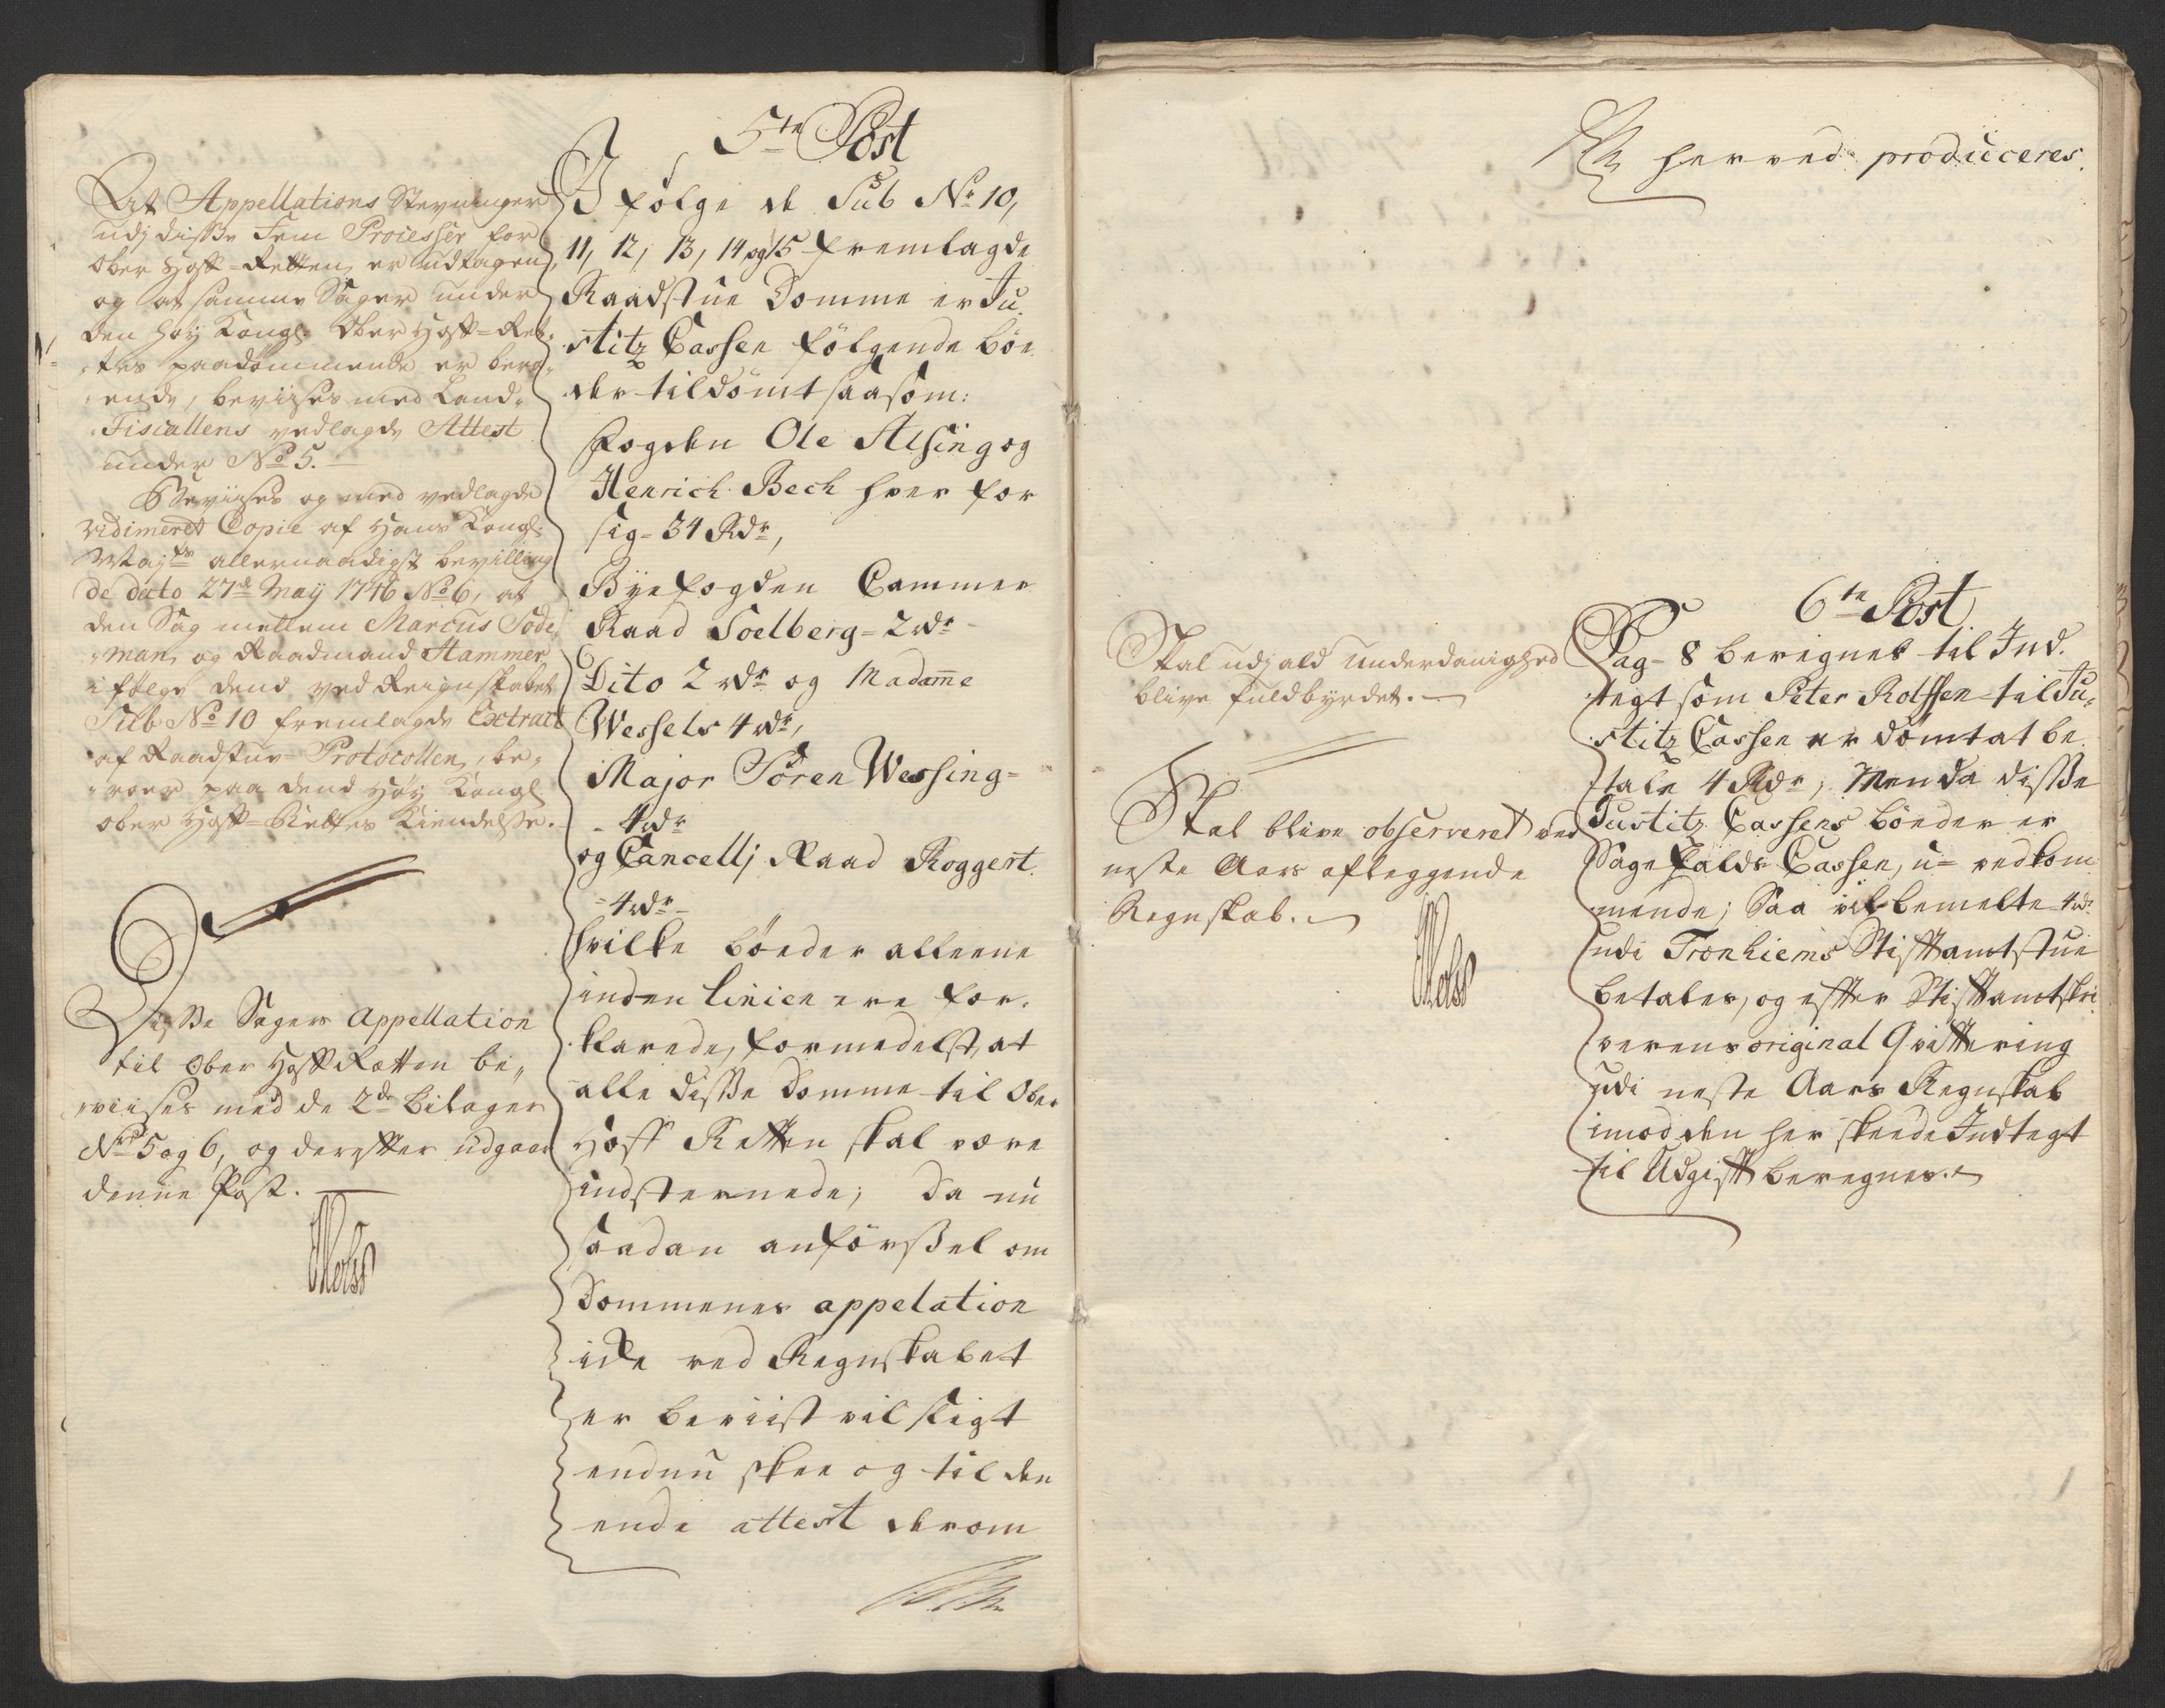 5te Post
At Appellations Stevninger
udj disse Fem Processer for
Ober Hoff-Retten er udtagen,
og at samme Sager under
den høy Kongl. Ober Hoff-Ret-
tes paadømmende er bero-
ende, bevises med Land-
Fiscallens vedlagde Attest
under No 5.
Beviises og med vedlagde
vidimeret Copie af Hans Kongl.
Mayts allernaadigst bevilling
de dato 27de May 1746 No 6, at
den Sag mellem Marcus Sode-
man og Raadmand Hammer
ifølge dend ved Reignskabet
Sub No 10 fremlagde Extract
af Raadstue-Protocollen, be-
roer paa dend Høy Kongl.
Ober Hoff-Rettes Kiendelse.
Disse Sagers Appellation
til Ober Hoff Retten be-
viises med de 2de bilager
No 5 og 6, og derefter udgaar
denne Post.
I følge de Sub No 10,
11, 12, 13, 14 og 15 fremlagde
Raadstue Domme er Ju-
stitz Cassen følgende bø-
der tildømt saasom:
Fogden Ole Alsing og
Henrich Bech hver for
sig = 34 Rdr,
Byefogden Cammer
Raad Soelberg = 2 rdr
Dito 2 rdr og Madame
Wessels 4 rdr,
Major Søren Wessing =
4 rdr
og Cancellj Raad Roggert
= 4 rdr
hvilke bøeder alleene
inden Linien ere for-
klarede, formedelst, at
alle disse Domme til Ober
Hoff Retten skal være
indstevnede; da nu
saadan anførsel om
Dommenes appelation
icke ved Regnskabet
er beviist vil sligt
endnu skee og til den
ende attest derom
herved produceres.
Skal udj ald underdanighed
blive fuldbyrdet.
Skal blive observeret ved
neste Aars aflæggende
Regnskab.
6te Post
Pag = 8 beregnes til Ind-
tegt som Peter Rolfsen til Ju-
stitz Cassen er dømt at be-
tale 4 Rdr, Men da disse
Justitz Cassens bøeder er
Sagefalds Cassen, u-vedkom-
mende; Saa vil bemelte 4 rdr
udi Tronhiems Stiftamtstue
betales, og efter Stiftamtskri-
verens original Qvittering
udi neste Aars Regnskab
imod den her skeede Indtegt
til Udgift beregnes.